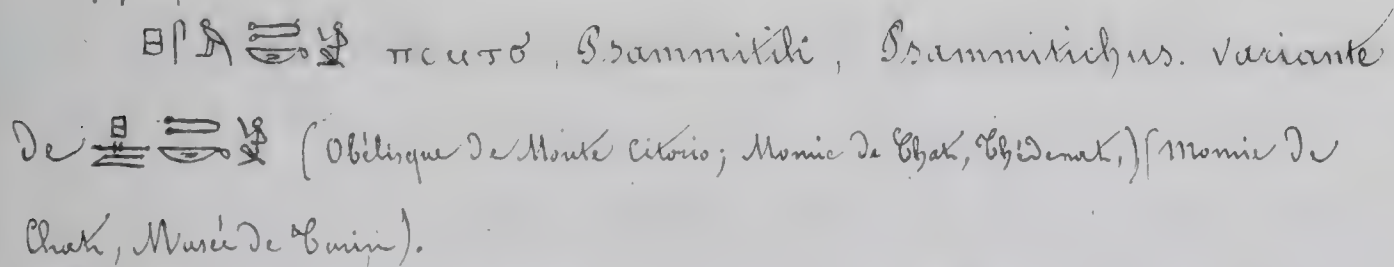 ⲡⲥⲙⲧϭ, Psammitik, Psammitichus. Variante
De (Obélisque de Monte Citorio; Momie de Chat, Thédenat,) (Momie de
Chat, Musée de Turin).